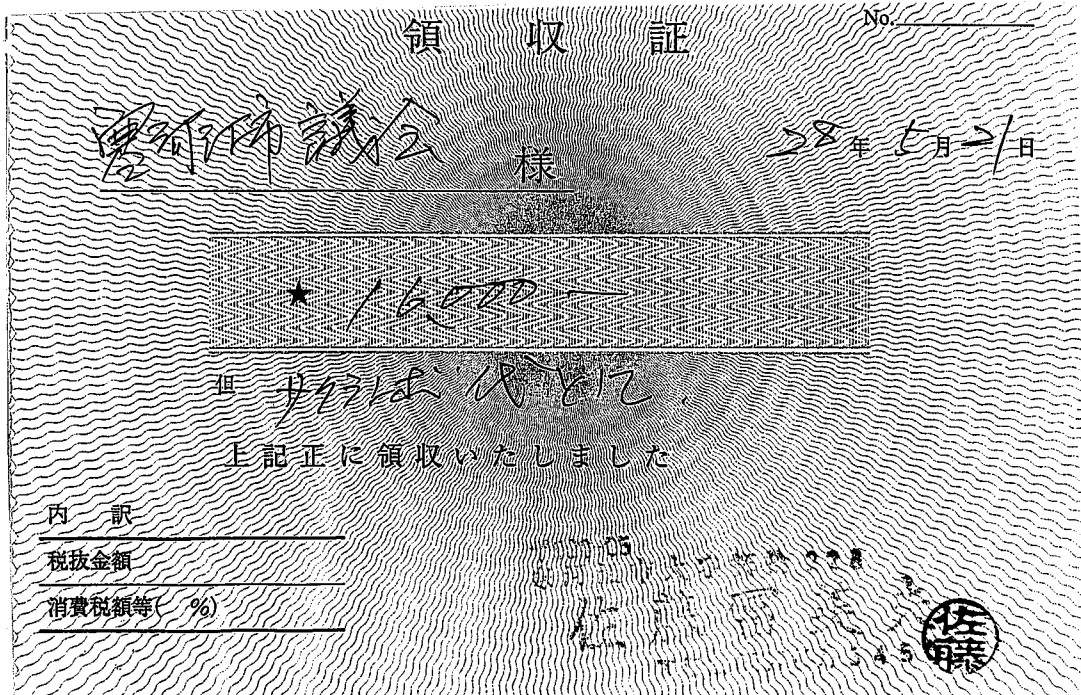 領収証
No.
市議会 様
28年5月21日
★ 16,000 —
但 代として
上記正に領収いたしました
内訳
税抜金額
消費税額等( %)
佐藤